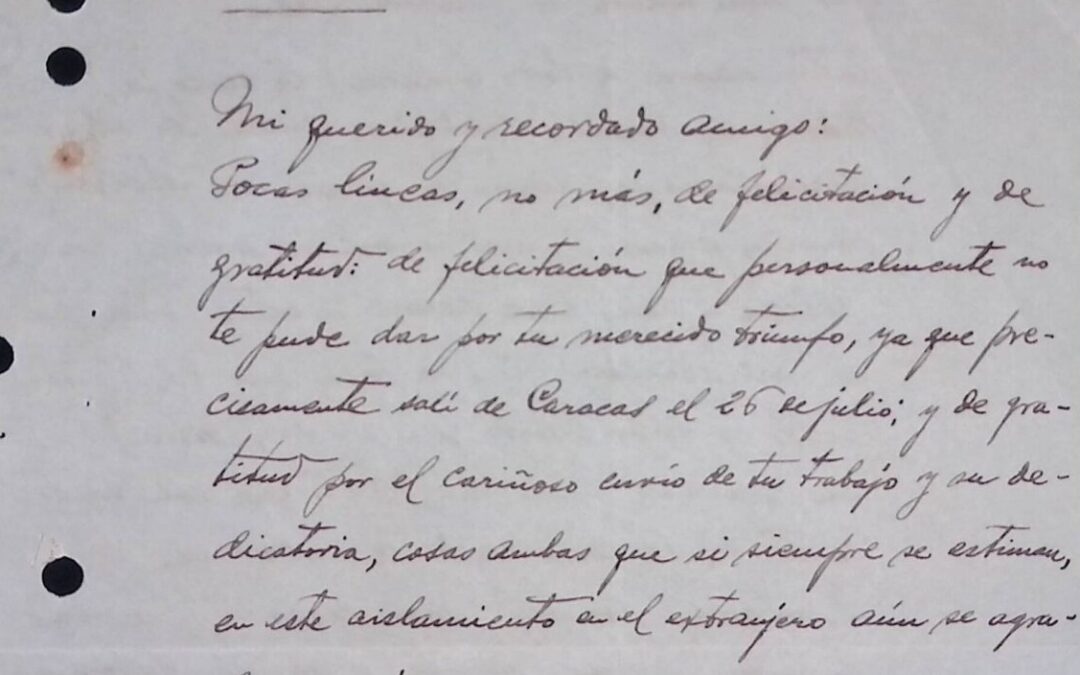 Mi querido y recordado amigo:
Pocas lineas, no más, de felicitación y de
gratitud: de felicitación que personalmente no
te pude dar por tu merecido triunfo, ya que pre-
cisamente salí de Caracas el 26 de julio; y de gra-
titud por el cariñoso envío de tu trabajo y su de-
dicatoria, cosas ambas que si siempre se estiman,
en este aislamiento en el extranjero aún se agra-